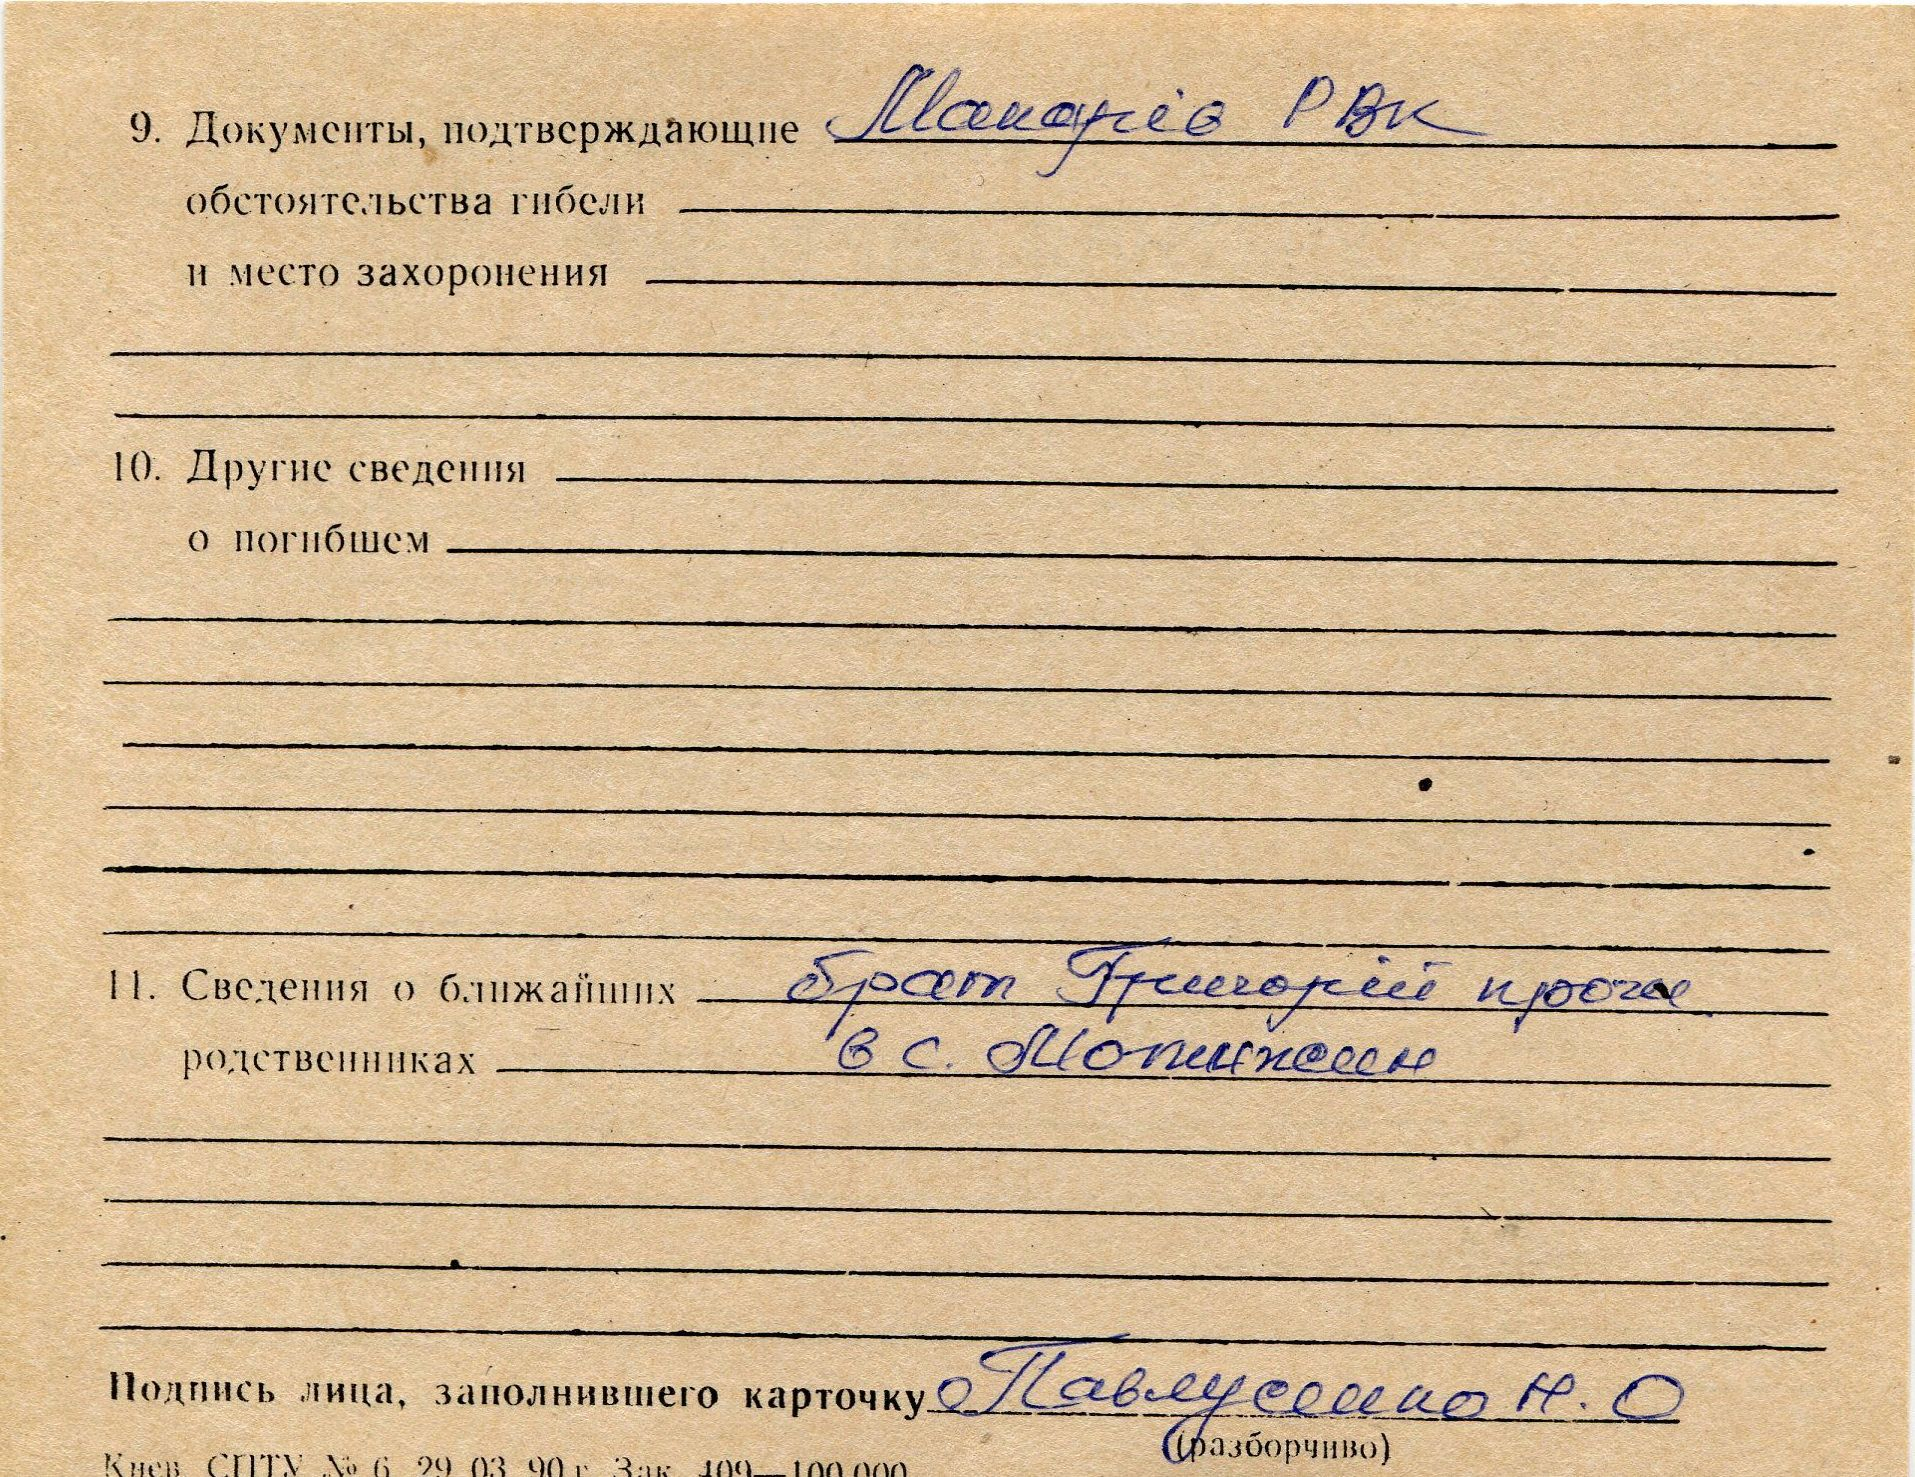 9. Документы, подтверждающие Макарів РВК
обстоятельства гибели
и место захоронения
10. Другие сведения
о погибшем
11. Сведения о ближайших брат Григорій
родственниках в с. Мотижин
Подпись лица, заполнившего карточку Павлусенко Н. О
(разборчиво)
Киев, СПТУ № 6, 29. 03. 90 г. Зак. 409—100 000